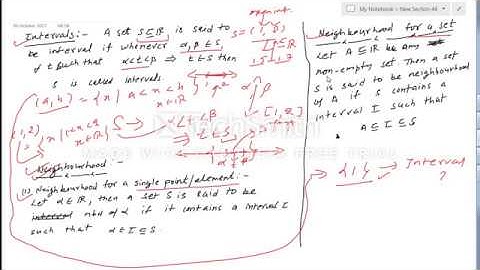 My Notebook > New Section 48
Intervals:- A set S⊆ℝ is said to
be interval if whenever α, β ∈ S,
& t such that α<t<β ⇒ t ∈ S then
S is called intervals.
(a, b) = {x | a < x < b
x∈ℝ}
(1,2) = {x | 1<x<2
x∈ℝ}
S →
α<t<β
t ∈ S
[1, 2]
Neighbourhood:-
(1) Neighbourhood for a single point/element:-
Let α∈ℝ, then a set S is said to be
nbd of α if it contains a interval I
such that α∈I⊆S
Neighbourhood for a set
Let A⊆ℝ be any
non-empty set. Then a set
S is said to be neighbourhood
of A if S contains a
interval I such that
A⊆I⊆S
Interval
?